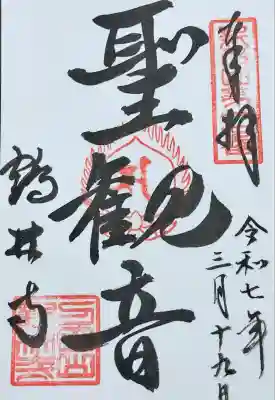 奉拝
令和七年
三月十九日
聖観音
鶴林寺